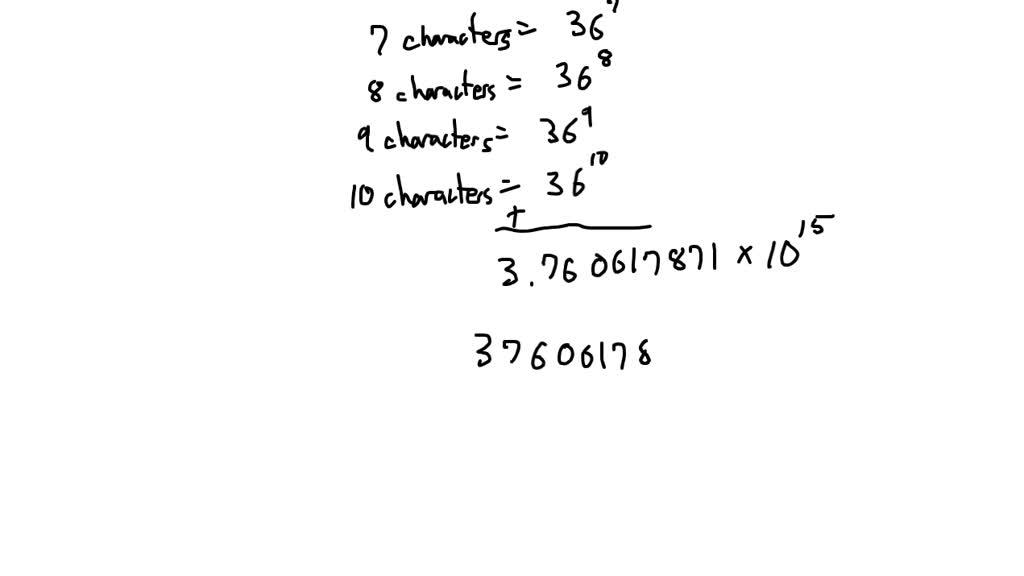 7 characters = 36^7
8 characters = 36^8
9 characters = 36^9
10 characters = 36^10
+
3.760617871 × 10^15
37606178